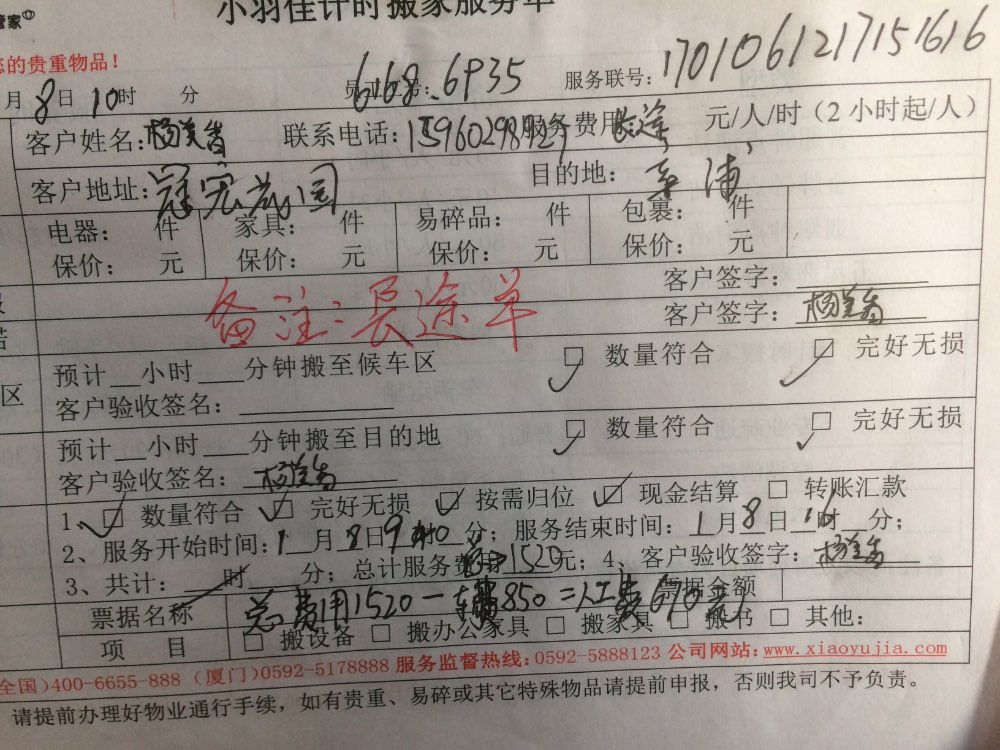 管家
小羽佳计时搬家服务单
您的贵重物品！
月8日10时 分 668.6935 服务联号：1701061217151616
客户姓名：杨美香 联系电话： 服务费用 长途 元/人/时（2小时起/人）
客户地址：冠宏花园 目的地： 浦
电器： 件 家具： 件 易碎品： 件 包裹： 件
保价： 元 保价： 元 保价： 元 保价： 元
客户签字：
备注：长途单
客户签字：杨美香
预计__小时___分钟搬至候车区 □ 数量符合 □ 完好无损
区
客户验收签名：
预计__小时___分钟搬至目的地 □ 数量符合 □ 完好无损
客户验收签名：杨美香
1、□ 数量符合 □ 完好无损 □ 按需归位 □ 现金结算 □ 转账汇款
2、服务开始时间：1月8日9时40分；服务结束时间：1月8日11时__分；
3、共计：___时___分；总计服务费1520元；4、客户验收签字：杨美香
票据名称 票据金额
总费用1520－车费850＝人工费670元
项 目 □ 搬设备 □ 搬办公家具 □ 搬家具 □ 搬书 □ 其他：
全国)400-6655-888 (厦门)0592-5178888 服务监督热线:0592-5888123 公司网站:www.xiaoyujia.com
请提前办理好物业通行手续，如有贵重、易碎或其它特殊物品请提前申报，否则我司不予负责。